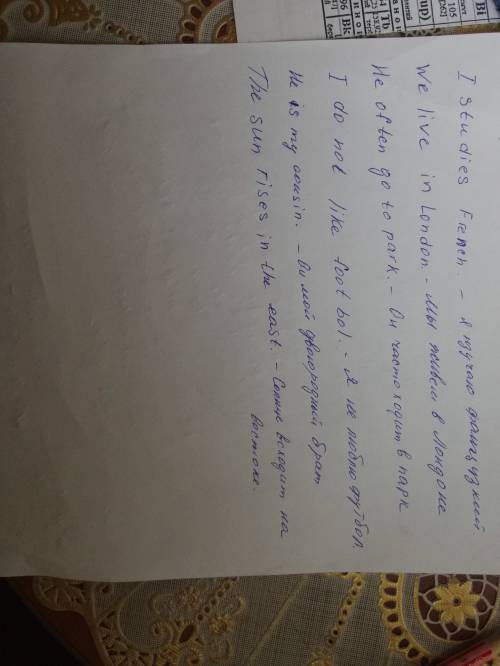 I studies French. - Я изучаю французкий.
We live in London. - Мы живем в Лондоне
He often go to park. - Он часто ходит в парк
I do not like foot bol. - Я не люблю футбол.
He is my cousin. - Он мой двоюродный брат
The sun rises in the east. - Солнце всходит на
востоке.